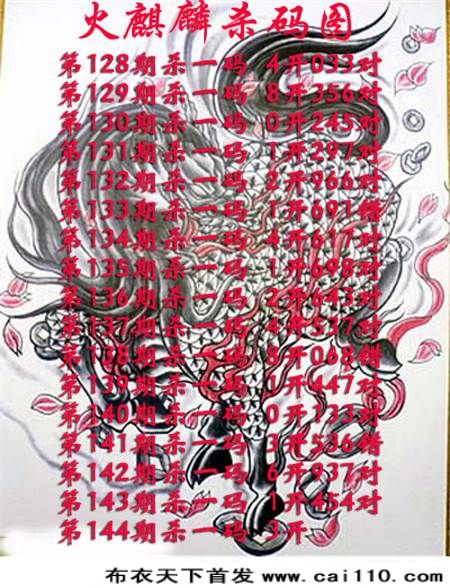 火麒麟杀码图
第128期杀一码 4开033对
第129期杀一码 8开356对
第130期杀一码 0开245对
第131期杀一码 1开297对
第132期杀一码 2开966对
第133期杀一码 1开691错
第134期杀一码 4开617对
第135期杀一码 1开698对
第136期杀一码 2开643对
第137期杀一码 4开537对
第138期杀一码 8开068错
第139期杀一码 1开447对
第140期杀一码 0开133对
第141期杀一码 3开536错
第142期杀一码 6开937对
第143期杀一码 1开454对
第144期杀一码 3开
布衣天下首发 www.cai110.com